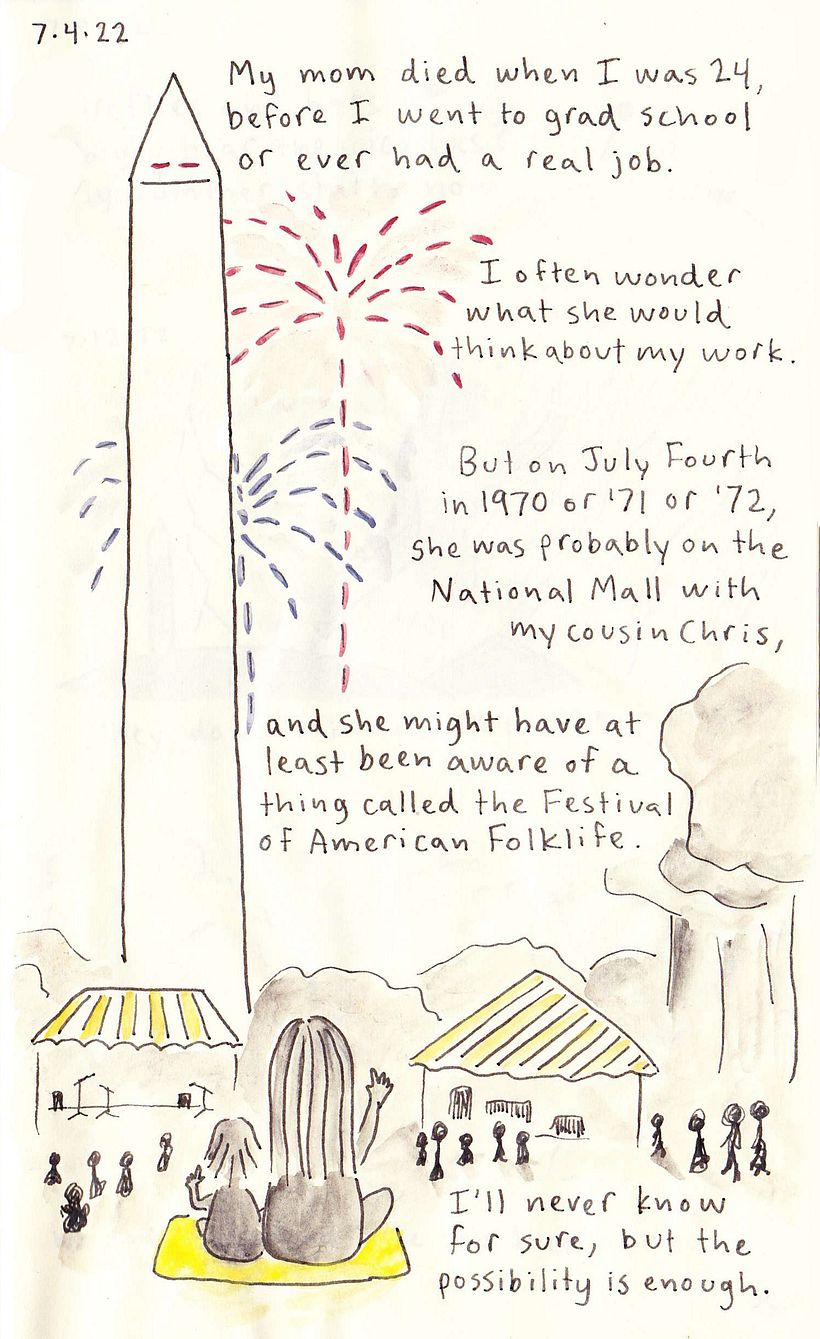 7.4.22
My mom died when I was 24,
before I went to grad school
or ever had a real job.
I often wonder
what she would
think about my work.
But on July Fourth
in 1970 or '71 or '72,
she was probably on the
National Mall with
my cousin Chris,
and she might have at
least been aware of a
thing called the Festival
of American Folklife.
I'll never know
for sure, but the
possibility is enough.